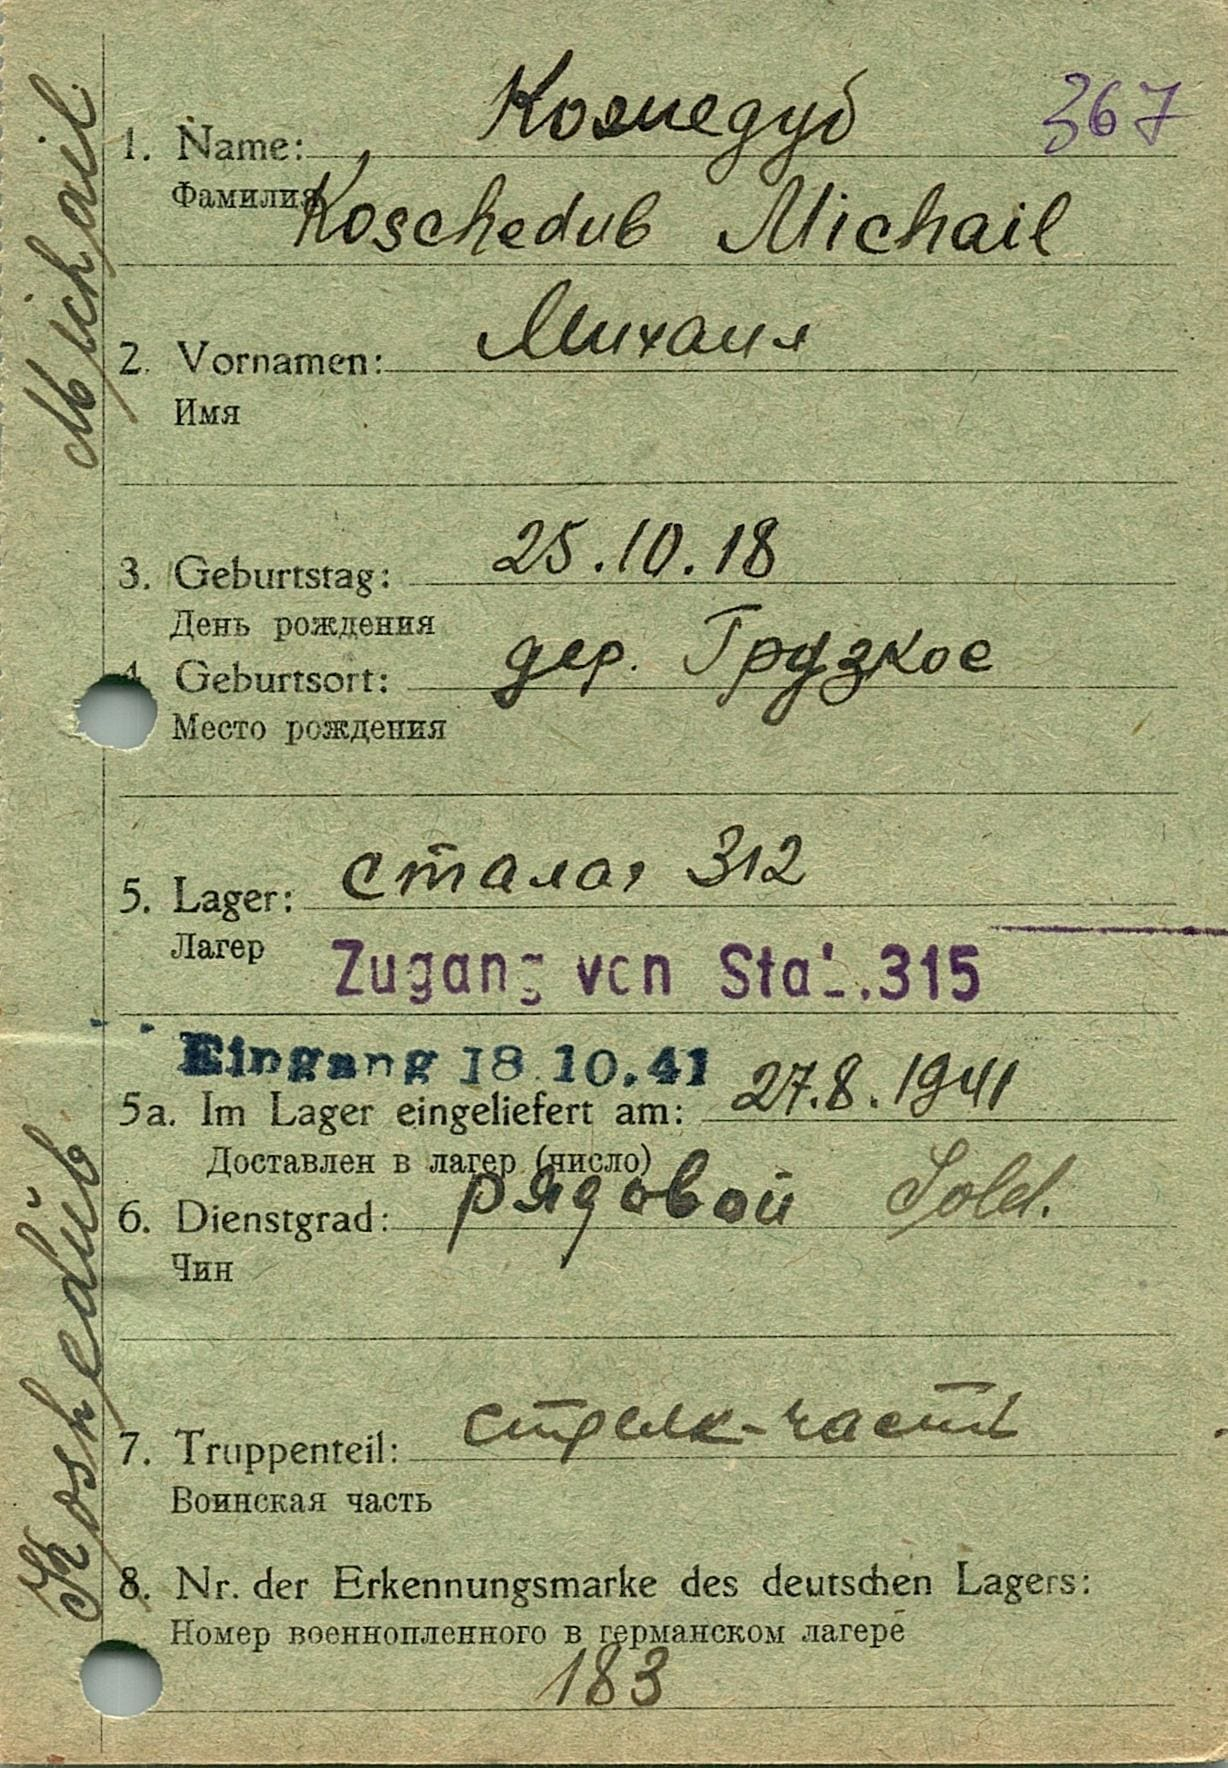 Кожедуб 367
1. Name:
Фамилия
Koschedub Michail
Михаил
2. Vornamen:
Имя
25.10.18
3. Geburtstag:
День рождения
дер. Грузкое
4 Geburtsort:
Место рождения
сталаг 312
5. Lager:
Лагер
Zugang von Stal.315
Eingang 18 10.41
5a. Im Lager eingeliefert am: 27.8.1941
Доставлен в лагер (число)
6. Dienstgrad: рядовой Sold.
Чин
7. Truppenteil: стрелк-часть
Воинская часть
8. Nr. der Erkennungsmarke des deutschen Lagers:
Номер военнопленного в германском лагере
183
Koshedüb Michail